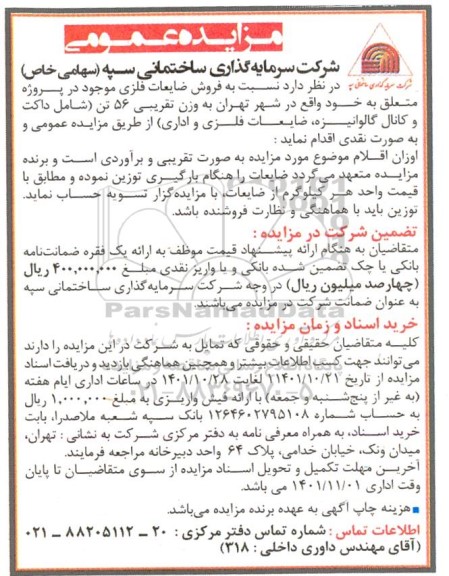 مزایده عمومی
شرکت سرمایه گذاری ساختمانی سپه (سهامی خاص)
شرکت سرمایه گذاری ساختمانی سپه
در نظر دارد نسبت به فروش ضایعات فلزی موجود در پروژه
متعلق به خود واقع در شهر تهران به وزن تقریبی ۵۶ تن (شامل داکت
و کانال گالوانیزه، ضایعات فلزی و اداری) از طریق مزایده عمومی و
به صورت نقدی اقدام نماید :
اوزان اقلام موضوع مورد مزایده به صورت تقریبی و برآوردی است و برنده
مزایده متعهد می‌گردد ضایعات را هنگام بارگیری توزین نموده و مطابق با
قیمت واحد هر کیلوگرم از ضایعات، با مزایده‌گزار تسویه حساب نماید.
توزین باید با هماهنگی و نظارت فروشنده باشد.
تضمین شرکت در مزایده :
متقاضیان به هنگام ارائه پیشنهاد قیمت موظف به ارائه یک فقره ضمانت‌نامه
بانکی یا چک تضمین شده بانکی و یا واریز نقدی مبلغ ۴۰۰,۰۰۰,۰۰۰ ریال
(چهارصد میلیون ریال) در وجه شرکت سرمایه‌گذاری ساختمانی سپه
به عنوان ضمانت شرکت در مزایده می‌باشند.
ParsNamadData
خرید اسناد و زمان مزایده :
کلیه متقاضیان حقیقی و حقوقی که تمایل به شرکت در این مزایده را دارند
می‌توانند جهت کسب اطلاعات بیشتر و همچنین هماهنگی بازدید و دریافت اسناد
مزایده از تاریخ ۱۴۰۱/۱۰/۲۱ لغایت ۱۴۰۱/۱۰/۲۸ در ساعات اداری ایام هفته
(به غیر از پنج‌شنبه و جمعه) با ارائه فیش واریزی به مبلغ ۱,۰۰۰,۰۰۰ ریال
به حساب شماره ۱۲۶۴۶۰۲۷۹۵۱۰۸ بانک سپه شعبه ملاصدرا، بابت
خرید اسناد، به همراه معرفی نامه به دفتر مرکزی شرکت به نشانی : تهران،
میدان ونک، خیابان خدامی، پلاک ۶۴ واحد دبیرخانه مراجعه فرمایند.
آخرین مهلت تکمیل و تحویل اسناد مزایده از سوی متقاضیان تا پایان
وقت اداری ۱۴۰۱/۱۱/۰۱ می باشد.
■ هزینه چاپ آگهی به عهده برنده مزایده می‌باشد.
اطلاعات تماس : شماره تماس دفتر مرکزی : ۲۰ – ۸۸۲۰۵۱۱۲ – ۰۲۱
(آقای مهندس داوری داخلی : ۳۱۸)